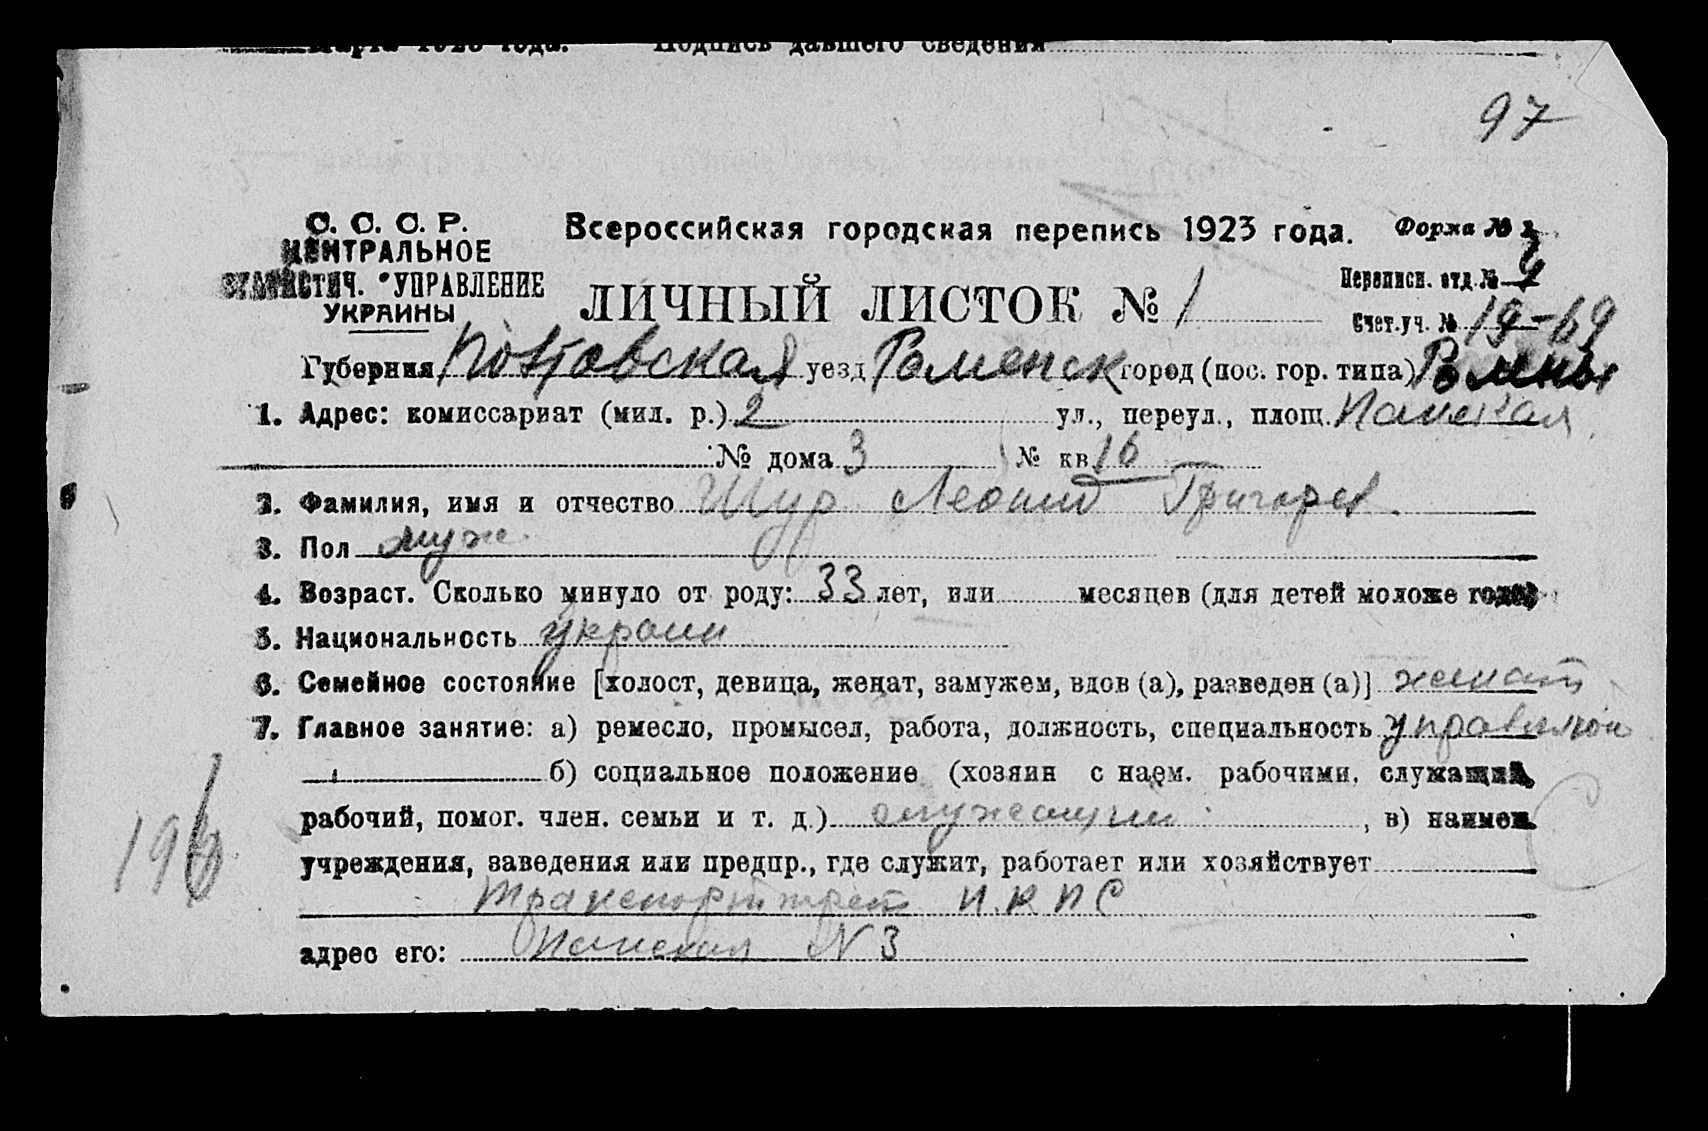 марта 1923 года. Подпись давшего сведения
97
С. С. С. Р.
ЦЕНТРАЛЬНОЕ
СТАТИСТИЧ. УПРАВЛЕНИЕ
УКРАИНЫ
Всероссийская городская перепись 1923 года. Форма №
ЛИЧНЫЙ ЛИСТОК № 1
Переписн. отд. №
Счет. уч. № 19-69
Губерния Полтавская уезд Роменск город (пос. гор. типа) Ромны
1. Адрес: комиссариат (мил. р.) 2 ул., переул., площ.
№ дома 3 № кв 16
2. Фамилия, имя и отчество Шур Леонид Григорьев
3. Пол муж.
4. Возраст. Сколько минуло от роду: 33 лет, или месяцев (для детей моложе года)
5. Национальность украин
6. Семейное состояние [холост, девица, женат, замужем, вдов (а), разведен (а)] женат
7. Главное занятие: а) ремесло, промысел, работа, должность, специальность
б) социальное положение (хозяин с наем. рабочими, служащий,
рабочий, помог. член. семьи и т. д.) служащий, в) наимен.
учреждения, заведения или предпр., где служит, работает или хозяйствует
Н К П С
адрес его: N 3
196